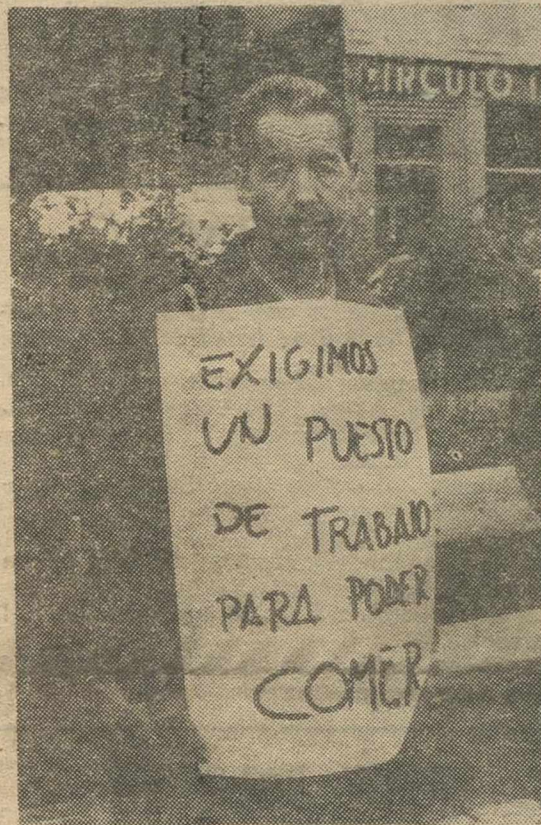 CIRCULO
EXIGIMOS
UN PUESTO
DE TRABAJO
PARA PODER
COMER